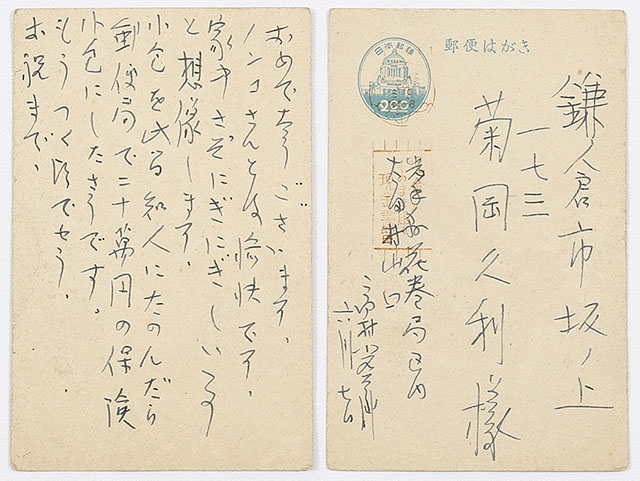 おめでたうございます、
ノンコさんとは愉快です、
家中さぞにぎにぎしい事
と想像します、
小包を此間知人にたのんだら
郵便局で二十萬円の保険
小包にしたさうです。
もうつく頃でせう、
お祝まで、
郵便はがき
日本郵便
200
鎌倉市坂ノ上
一七三
菊岡久利様
岩手縣花巻局区内
太田村山口
高村光太郎
六月七日